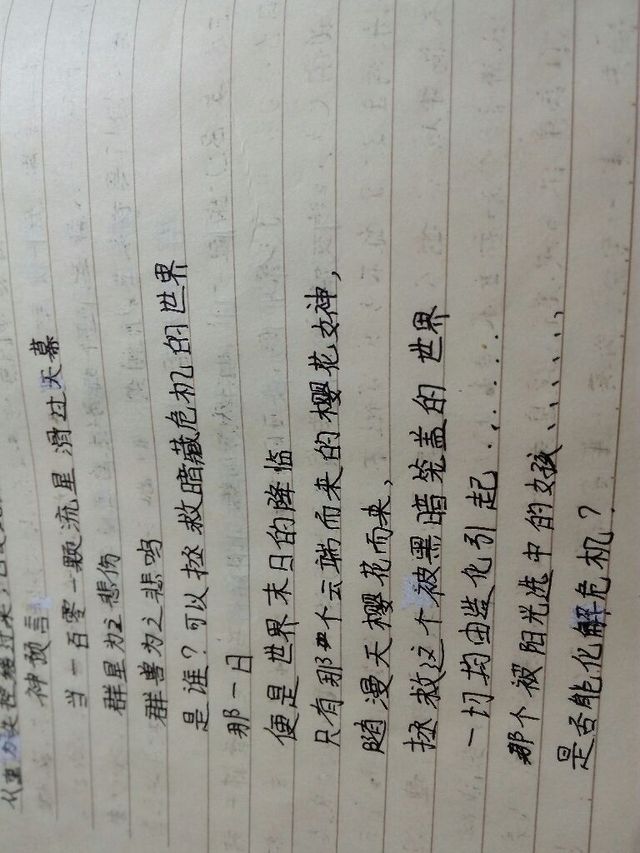 神预言
当一百零一颗流星滑过天幕
群星为之悲伤
群兽为之悲鸣
是谁?可以拯救暗藏危机的世界
那一日
便是世界末日的降临
只有那个云端而来的樱花女神,
随漫天樱花而来、
拯救这个被黑暗笼盖的世界
一切均由此化引起......
那个被阳光选中的女孩......
是否能化解危机?